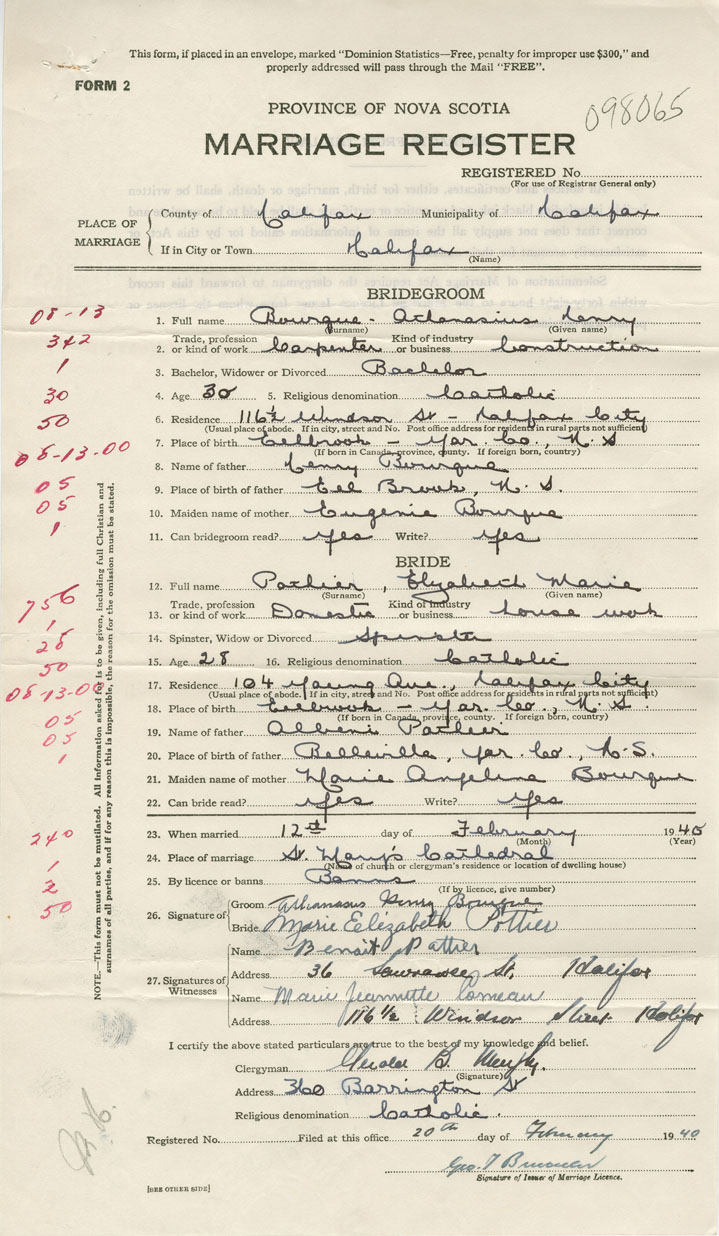 This form, if placed in an envelope, marked "Dominion Statistics—Free, penalty for improper use $300," and
properly addressed will pass through the Mail "FREE".
FORM 2
PROVINCE OF NOVA SCOTIA
098065
MARRIAGE REGISTER
REGISTERED No.
(For use of Registrar General only)
PLACE OF MARRIAGE
County of Halifax Municipality of Halifax
If in City or Town Halifax
(Name)
BRIDEGROOM
08-13
1. Full name Bourque - Athanasius Henry
(Surname) (Given name)
342
2. Trade, profession or kind of work Carpenter Kind of industry or business Construction
1
3. Bachelor, Widower or Divorced Bachelor
30
4. Age 30 5. Religious denomination Catholic
50
6. Residence 116½ Windsor St - Halifax City
(Usual place of abode. If in city, street and No. Post office address for residents in rural parts not sufficient)
08-13-00
7. Place of birth Eelbrook - Yar. Co., N. S
(If born in Canada, province, county. If foreign born, country)
8. Name of father Henry Bourque
05
9. Place of birth of father Eel Brook, N. S.
05
10. Maiden name of mother Eugenie Bourque
1
11. Can bridegroom read? Yes Write? Yes
BRIDE
12. Full name Pothier, Elizabeth Marie
(Surname) (Given name)
756
13. Trade, profession or kind of work Domestic Kind of industry or business house work
1
14. Spinster, Widow or Divorced Spinster
28
15. Age 28 16. Religious denomination Catholic
50
17. Residence 104 Young Ave., Halifax City
(Usual place of abode. If in city, street and No. Post office address for residents in rural parts not sufficient)
08-13-00
18. Place of birth Eelbrook - Yar. Co., N. S.
(If born in Canada, province, county. If foreign born, country)
05
19. Name of father Albeni Pothier
05
20. Place of birth of father Belleville, Yar. Co., N. S.
1
21. Maiden name of mother Marie Angelina Bourque
22. Can bride read? Yes Write? Yes
23. When married 12th day of February 1940
(Month) (Year)
240
24. Place of marriage St. Mary's Cathedral
(Name of church or clergyman's residence or location of dwelling house)
1
25. By licence or banns Banns
(If by licence, give number)
2
50
26. Signature of
Groom Athanasus Henry Bourque
Bride Marie Elizabeth Pottier
27. Signatures of Witnesses
Name Benoit Pattier
Address 36 St. Halifax
Name Marie Jeannette Comeau
Address 116 1/2 Windsor Street Halifax
I certify the above stated particulars are true to the best of my knowledge and belief.
Clergyman B. Murphy.
(Signature)
Address 360 Barrington St
Religious denomination Catholic.
Registered No. Filed at this office 20th day of February 1940
Geo. T
Signature of Issuer of Marriage Licence.
[SEE OTHER SIDE]
NOTE.—This form must not be mutilated. All information asked for is to be given, including full Christian and
surnames of all parties, and if for any reason this is impossible, the reason for the omission must be stated.